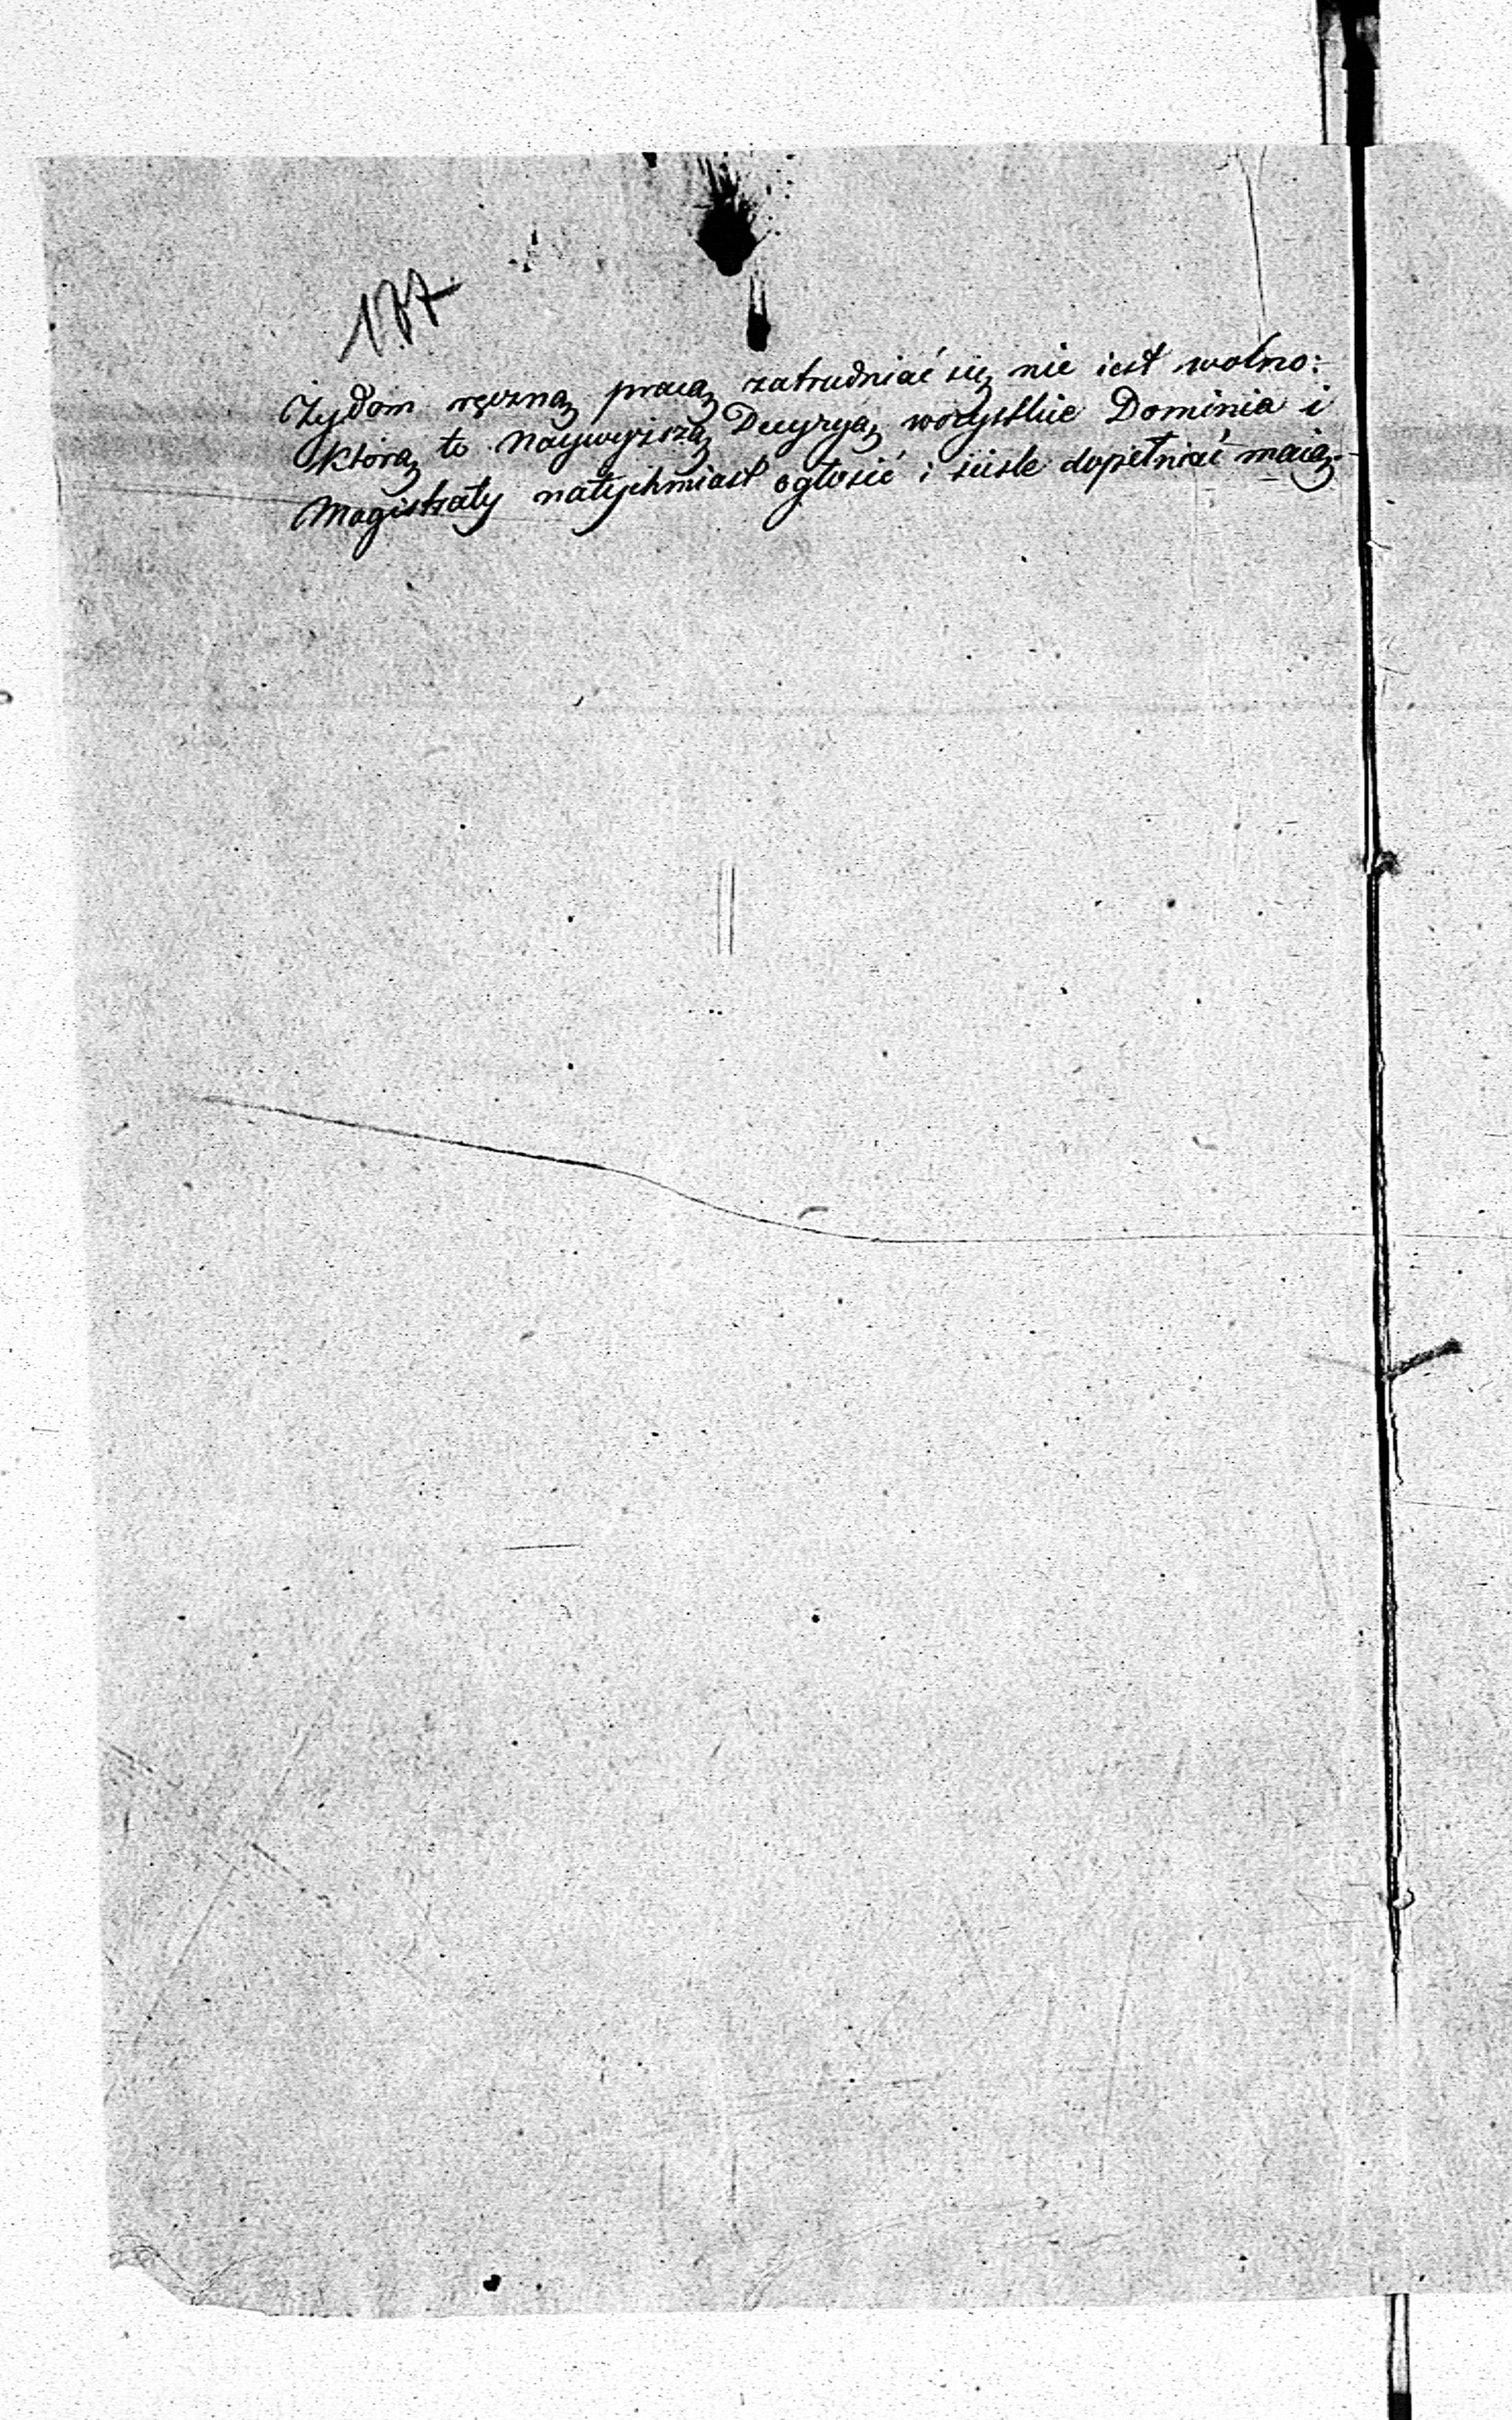 177
Żydom ręczną pracą zatrudniać się nie iest wolno:
którą to Naywyższą Decyzyą wszystkie Dominia i
Magistraty natychmiast ogłosić i ściśle dopełniać maią.